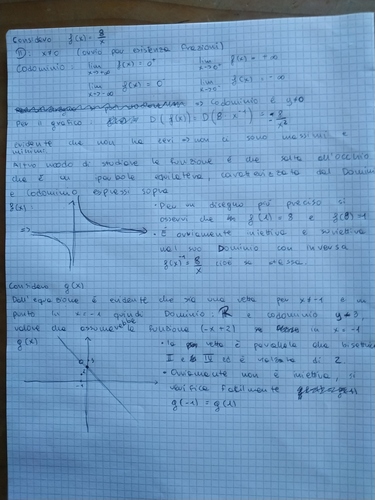 Considero f(x) = 8/x
D: x≠0 (ovvio per esistenza frazioni)
Codominio: lim x→+∞ f(x) = 0⁺ lim x→0⁺ f(x) = +∞
lim x→-∞ f(x) = 0⁻ lim x→0⁻ f(x) = -∞
⇒ codominio è y≠0
Per il grafico D(f(x)) = D(8 x⁻¹) = -8/x²
evidente che non ha zeri ⇒ non ci sono massimi e
minimi.
Altro modo di studiare la funzione è che salta all'occhio
che è un' equilatera, caratterizzata dal Dominio
e Codominio espressi sopra
f(x):
• Per un disegno più preciso si
osservi che f(1) = 8 e f(8) = 1
• È ovviamente iniettiva e suriettiva
nel suo Dominio con inversa
f(x)⁻¹ = 8/x cioè se stessa.
Considero g(x)
Dall'equazione è evidente che sia una retta per x≠-1 e un
punto in x = -1 quindi Dominio: R e codominio y≠3,
valore che assumerebbe la funzione (-x+2) in x = -1
g(x)
• la retta è parallela alla bisettrice
II e IV ed è rialzata di 2.
• Ovviamente non è iniettiva, si
verifica facilmente
g(-1) = g(1)